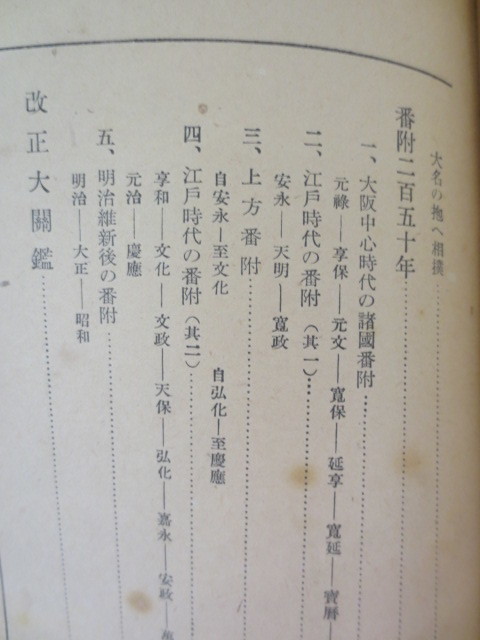 大名の抱へ相撲
番附二百五十年
一、大阪中心時代の諸國番附
元祿——享保——元文——寬保——延享——寬延——寶曆——
二、江戶時代の番附(其一)
安永——天明——寬政
三、上方番附
自安永—至文化 自弘化—至慶應
四、江戶時代の番附(其二)
享和——文化——文政——天保——弘化——嘉永——安政——萬
元治——慶應
五、明治維新後の番附
明治——大正——昭和
改正大關鑑